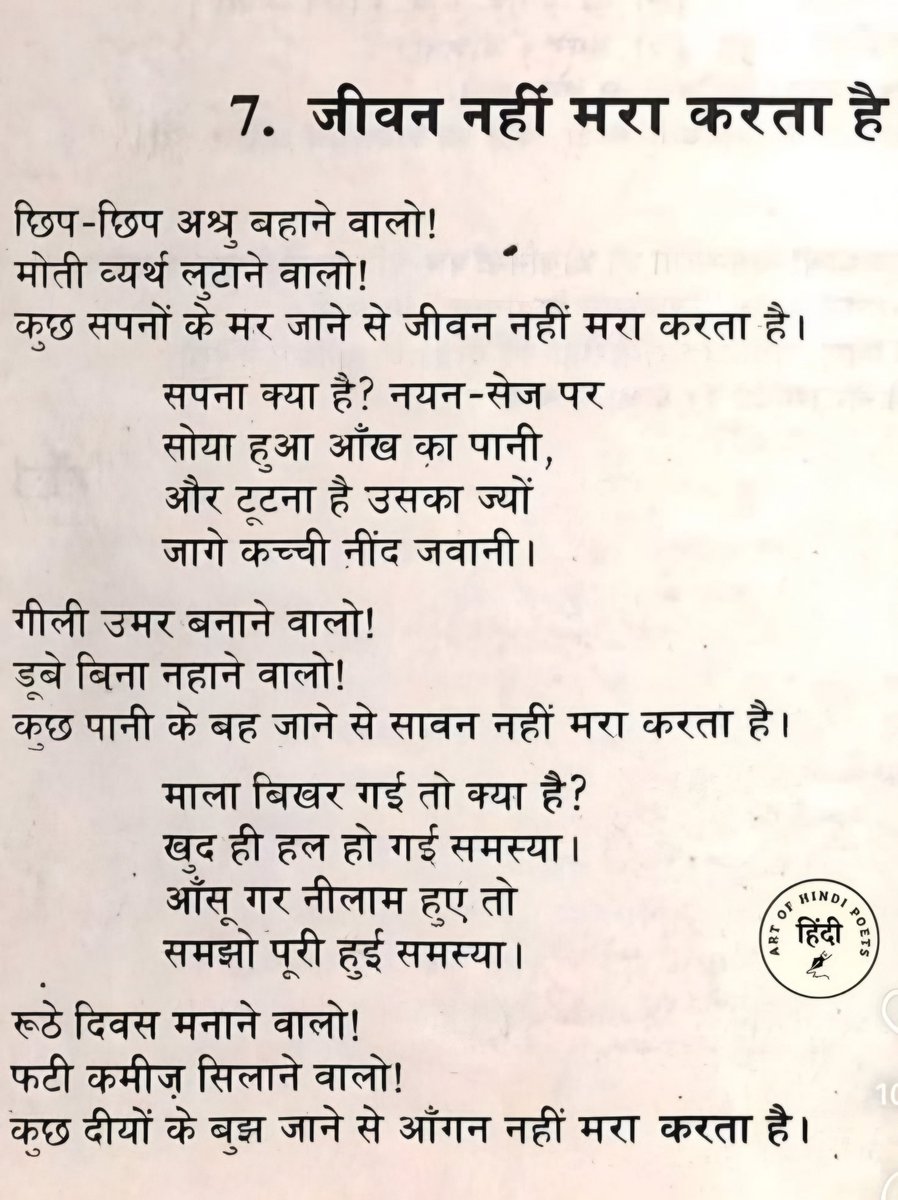 7. जीवन नहीं मरा करता है
छिप-छिप अश्रु बहाने वालो!
मोती व्यर्थ लुटाने वालो!
कुछ सपनों के मर जाने से जीवन नहीं मरा करता है।
सपना क्या है? नयन-सेज पर
सोया हुआ आँख का पानी,
और टूटना है उसका ज्यों
जागे कच्ची नींद जवानी।
गीली उमर बनाने वालो!
डूबे बिना नहाने वालो!
कुछ पानी के बह जाने से सावन नहीं मरा करता है।
माला बिखर गई तो क्या है?
खुद ही हल हो गई समस्या।
आँसू गर नीलाम हुए तो
समझो पूरी हुई समस्या।
ART OF HINDI POETS
हिंदी
रूठे दिवस मनाने वालो!
फटी कमीज़ सिलाने वालो!
10
कुछ दीयों के बुझ जाने से आँगन नहीं मरा करता है।